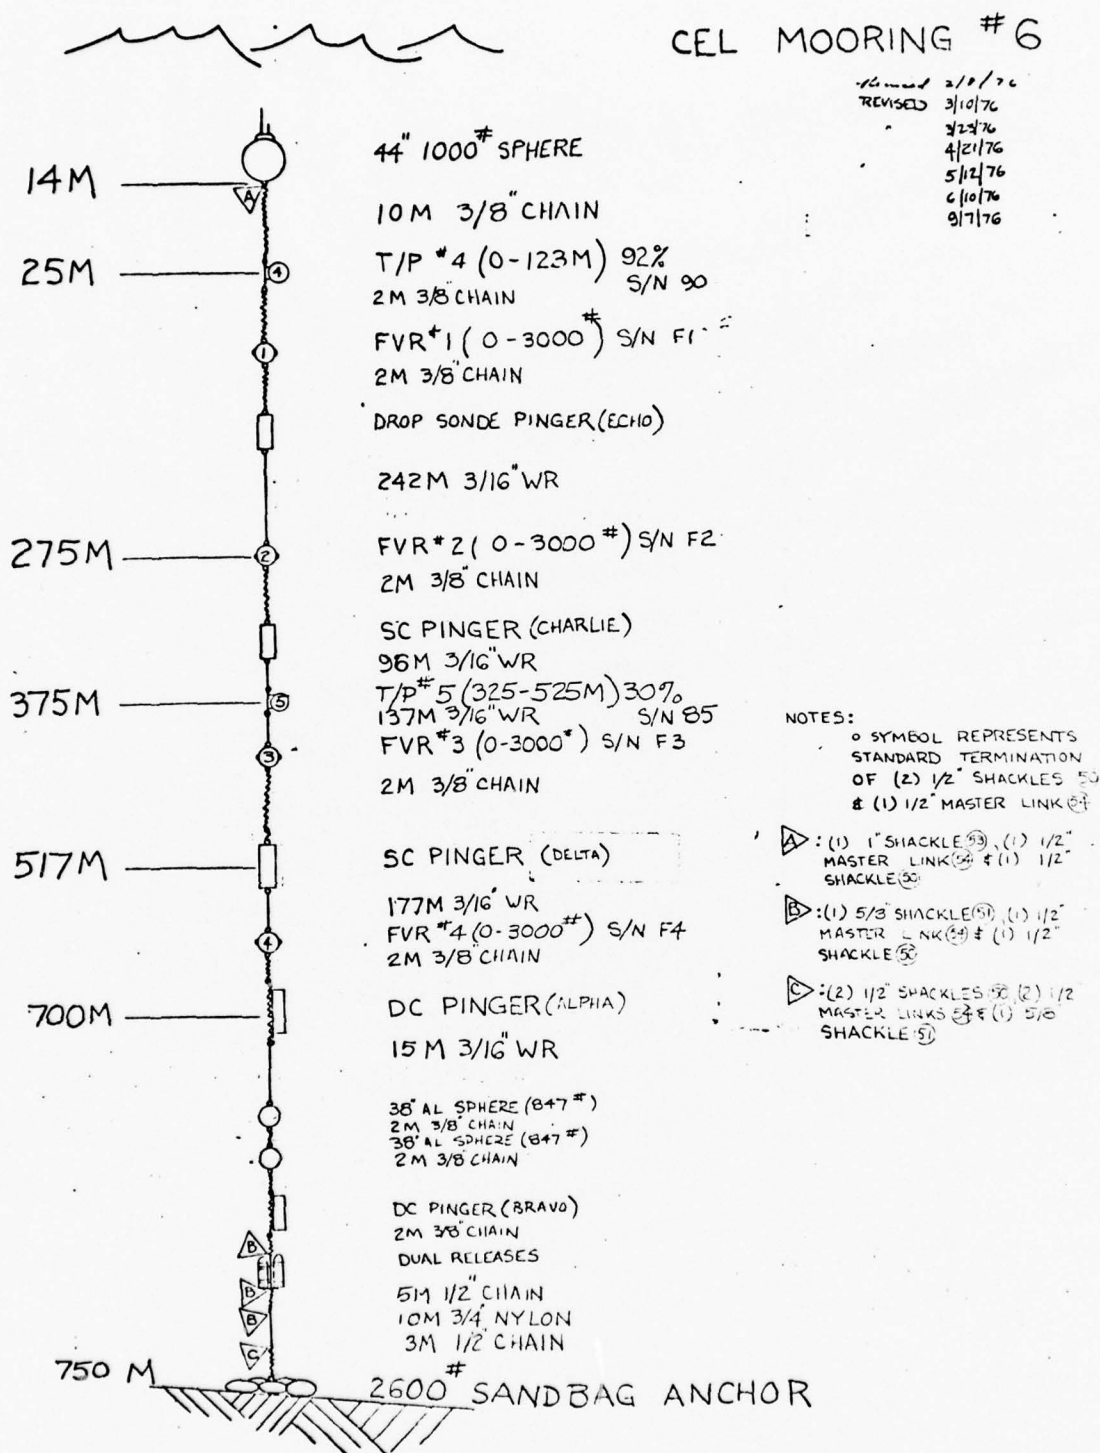 CEL MOORING #6
2/8/76
REVISED 3/10/76
3/23/76
4/21/76
5/12/76
6/10/76
9/7/76
44" 1000# SPHERE
14M
A
10M 3/8" CHAIN
25M
4
T/P #4 (0-123M) 92%
S/N 90
2M 3/8" CHAIN
1
FVR#1 (0-3000#) S/N F1
2M 3/8" CHAIN
DROP SONDE PINGER (ECHO)
242M 3/16" WR
275M
2
FVR#2 (0-3000#) S/N F2
2M 3/8" CHAIN
SC PINGER (CHARLIE)
96M 3/16" WR
375M
5
T/P#5 (325-525M) 30%
137M 3/16" WR S/N 85
3
FVR#3 (0-3000#) S/N F3
2M 3/8" CHAIN
517M
SC PINGER (DELTA)
177M 3/16" WR
4
FVR#4 (0-3000#) S/N F4
2M 3/8" CHAIN
700M
DC PINGER (ALPHA)
15M 3/16" WR
38" AL SPHERE (847#)
2M 3/8" CHAIN
38" AL SPHERE (847#)
2M 3/8" CHAIN
DC PINGER (BRAVO)
2M 3/8" CHAIN
B
DUAL RELEASES
B
5M 1/2" CHAIN
B
10M 3/4" NYLON
C
3M 1/2" CHAIN
750 M
2600# SANDBAG ANCHOR
NOTES:
o SYMBOL REPRESENTS
STANDARD TERMINATION
OF (2) 1/2" SHACKLES 50
& (1) 1/2" MASTER LINK 54
A :(1) 1" SHACKLE 53, (1) 1/2"
MASTER LINK 54 & (1) 1/2"
SHACKLE 50
B :(1) 5/8" SHACKLE 51, (1) 1/2"
MASTER LINK 54 & (1) 1/2"
SHACKLE 50
C :(2) 1/2" SHACKLES 50, (2) 1/2
MASTER LINKS 54 & (1) 5/8"
SHACKLE 51